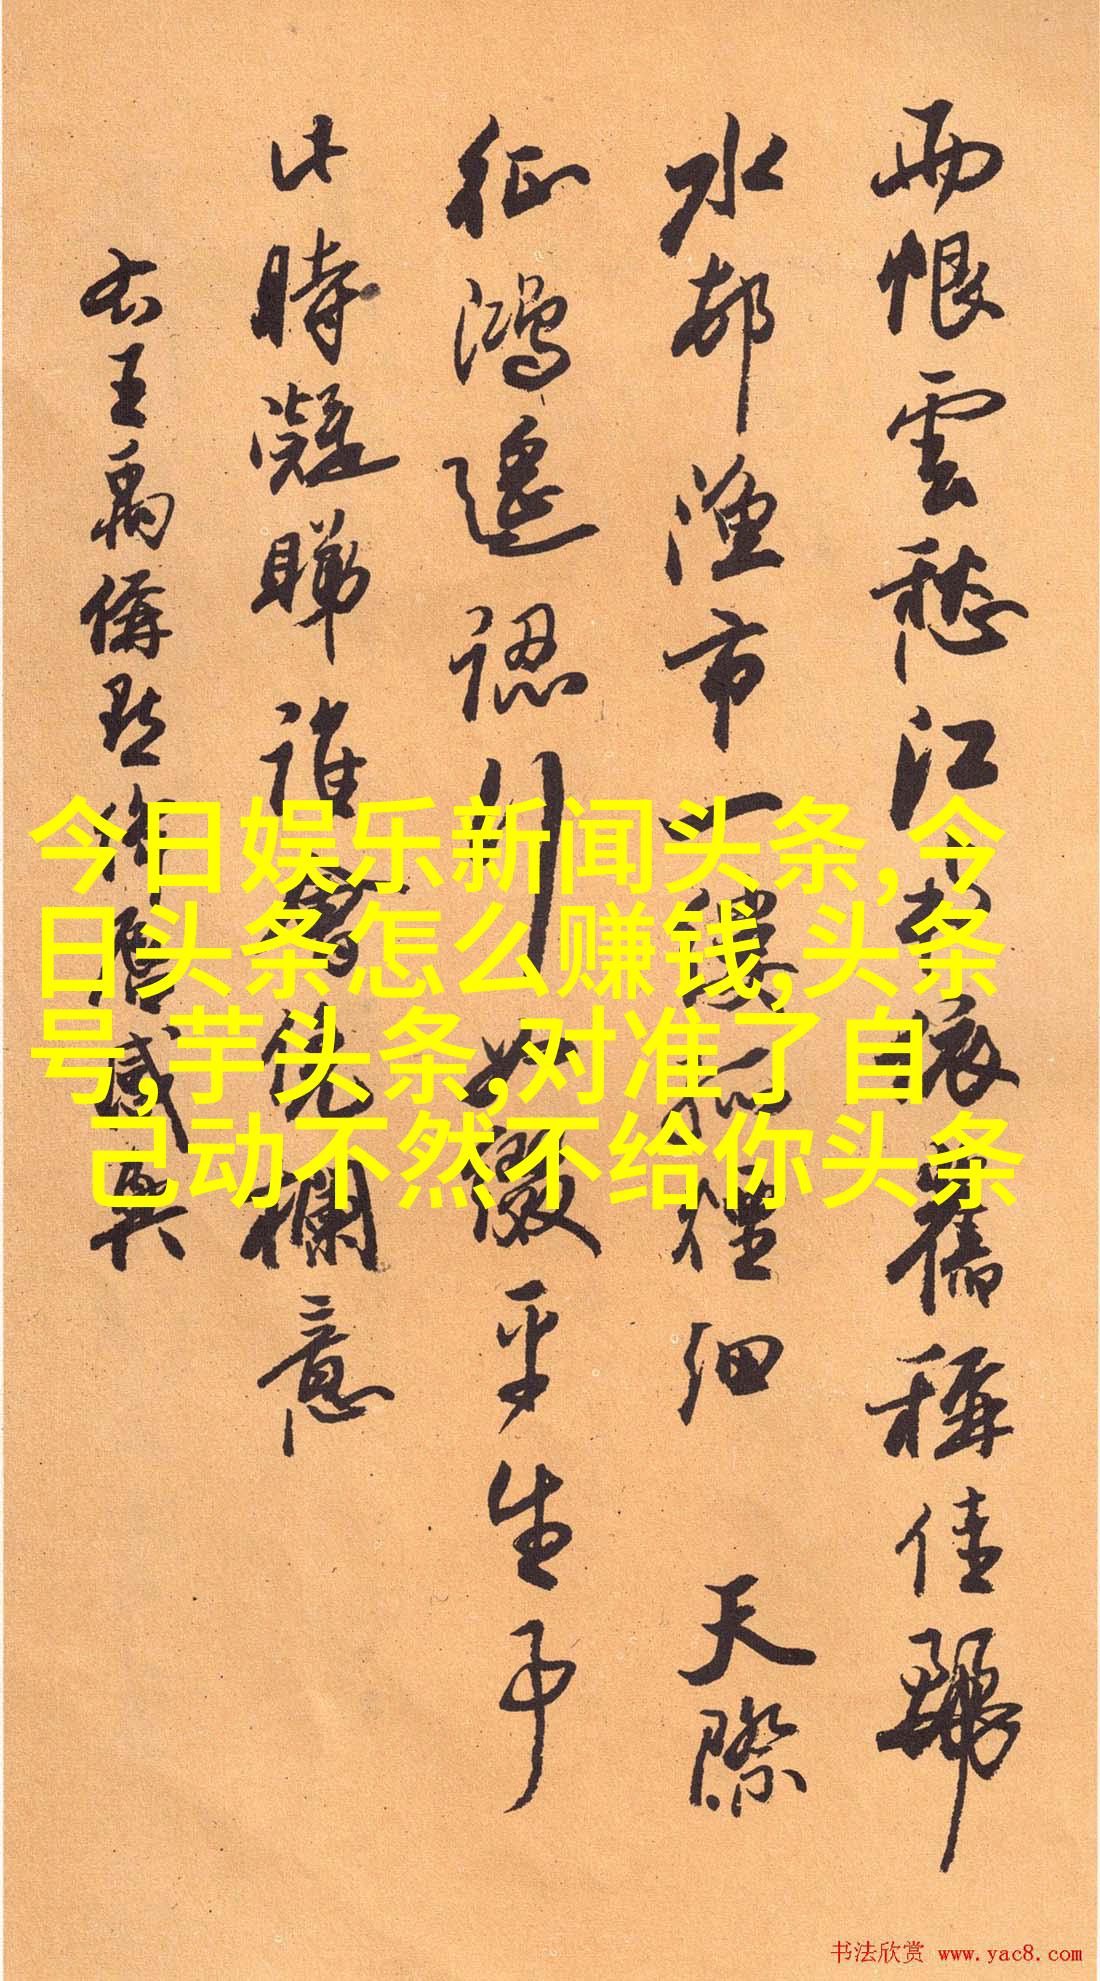 雨恨雲愁江南依舊稱佳麗
水邨漁市一縷孤煙細 天際
征鴻遙認行如綴平生事
此時凝睇誰會凭欄意
右王禹偁點絳唇感興
今日娱乐新闻头条,今
日头条怎么赚钱,头条
号,芋头条,对准了自
己动不然不给你头条
书法欣赏 www.yac8.com